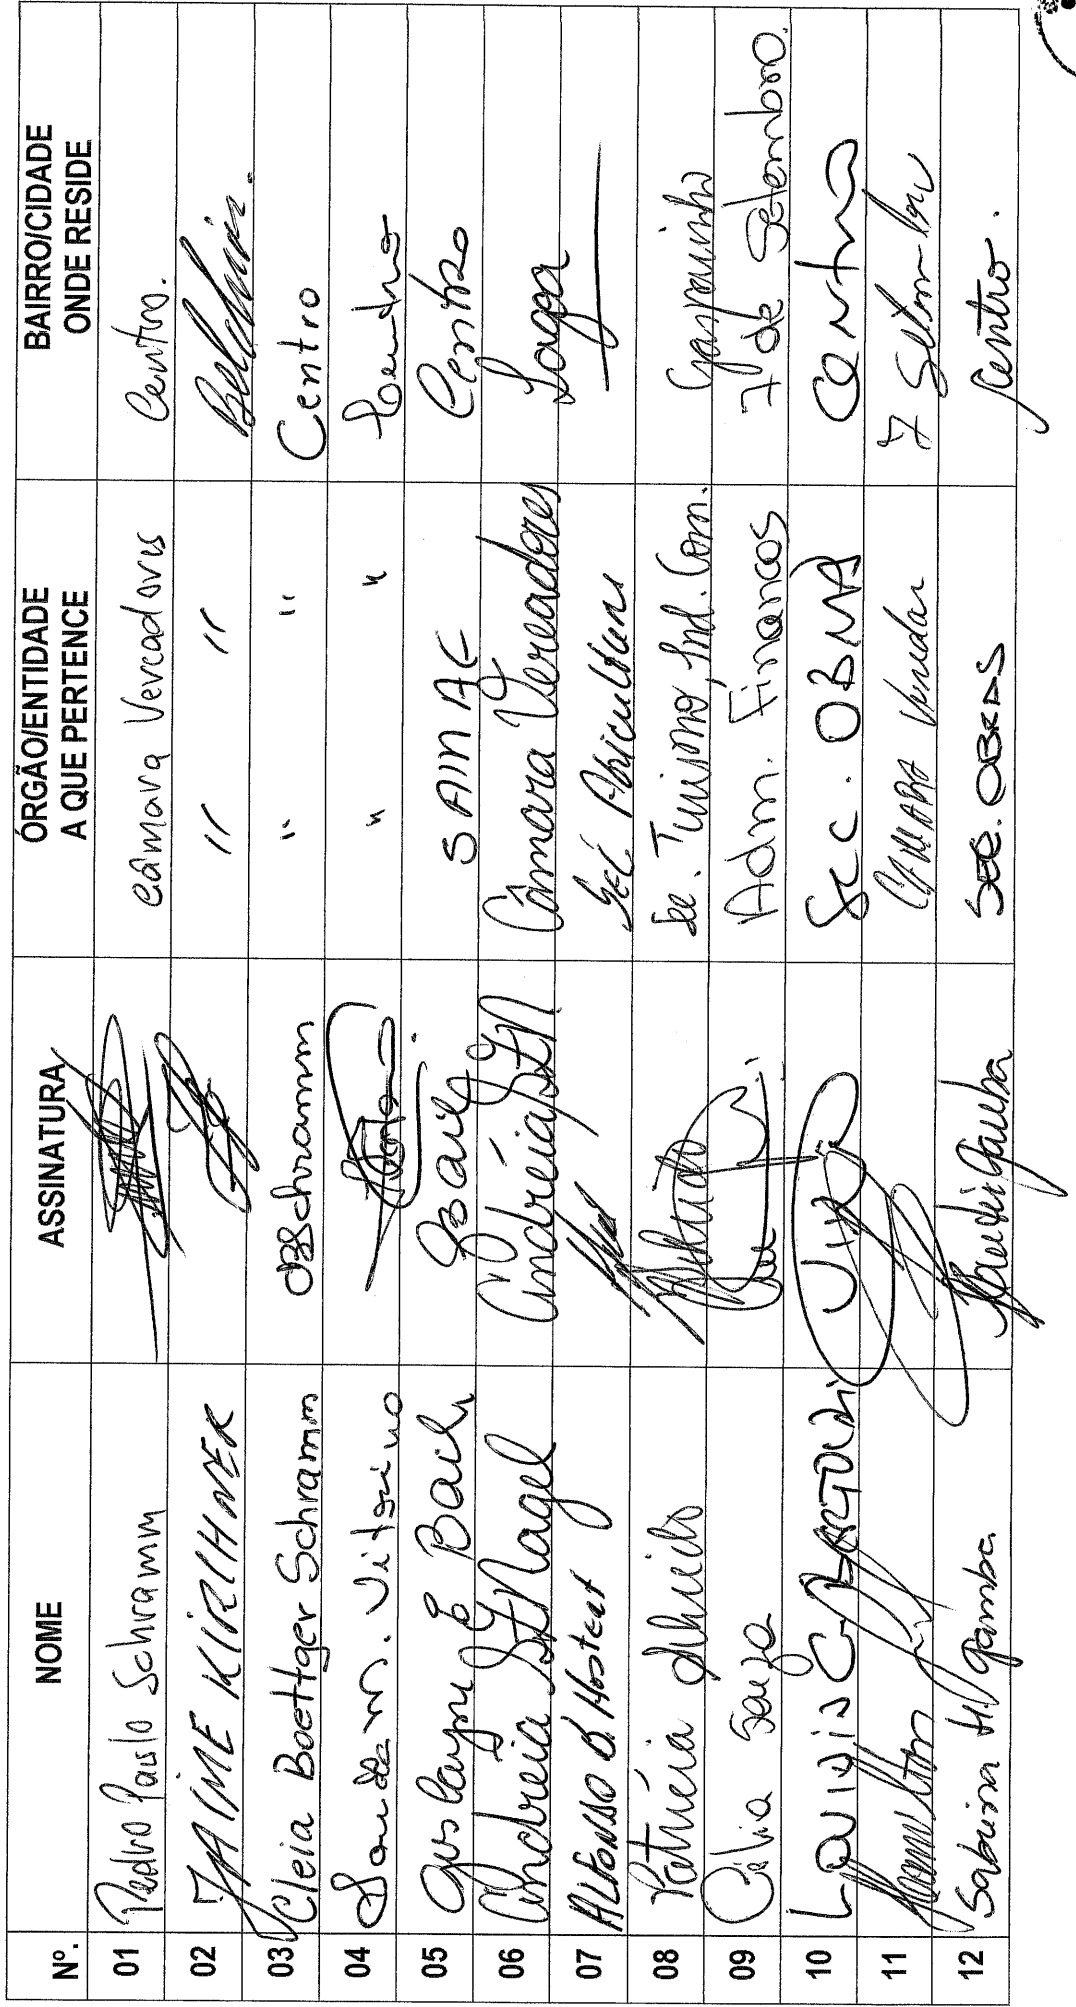 Nº. NOME ASSINATURA ÓRGÃO/ENTIDADE A QUE PERTENCE BAIRRO/CIDADE ONDE RESIDE
01 Pedro Paulo Schramm Câmara Vereadores Centro.
02 JAIME KIRCHNER " " Belchior.
03 Cleia Boettger Schramm CBSchramm " " Centro
04 Sandra M. Vitorino " " Centro
05 Bach Bach SAMAE Centro
06 Andreia Nagel Andréia Câmara Vereadores Lagoa
07 ALFONSO B. Hostert Sec Agricultura —
08 Patricia Sec. Turismo, Ind. Com. Gasparinho
09 Célia Souza Adm. Finanças 7 de Setembro.
10 Sec. OBRAS Centro
11 CAMARA 7 Setembro
12 Sabrina H. Gamba SEC. OBRAS Centro.